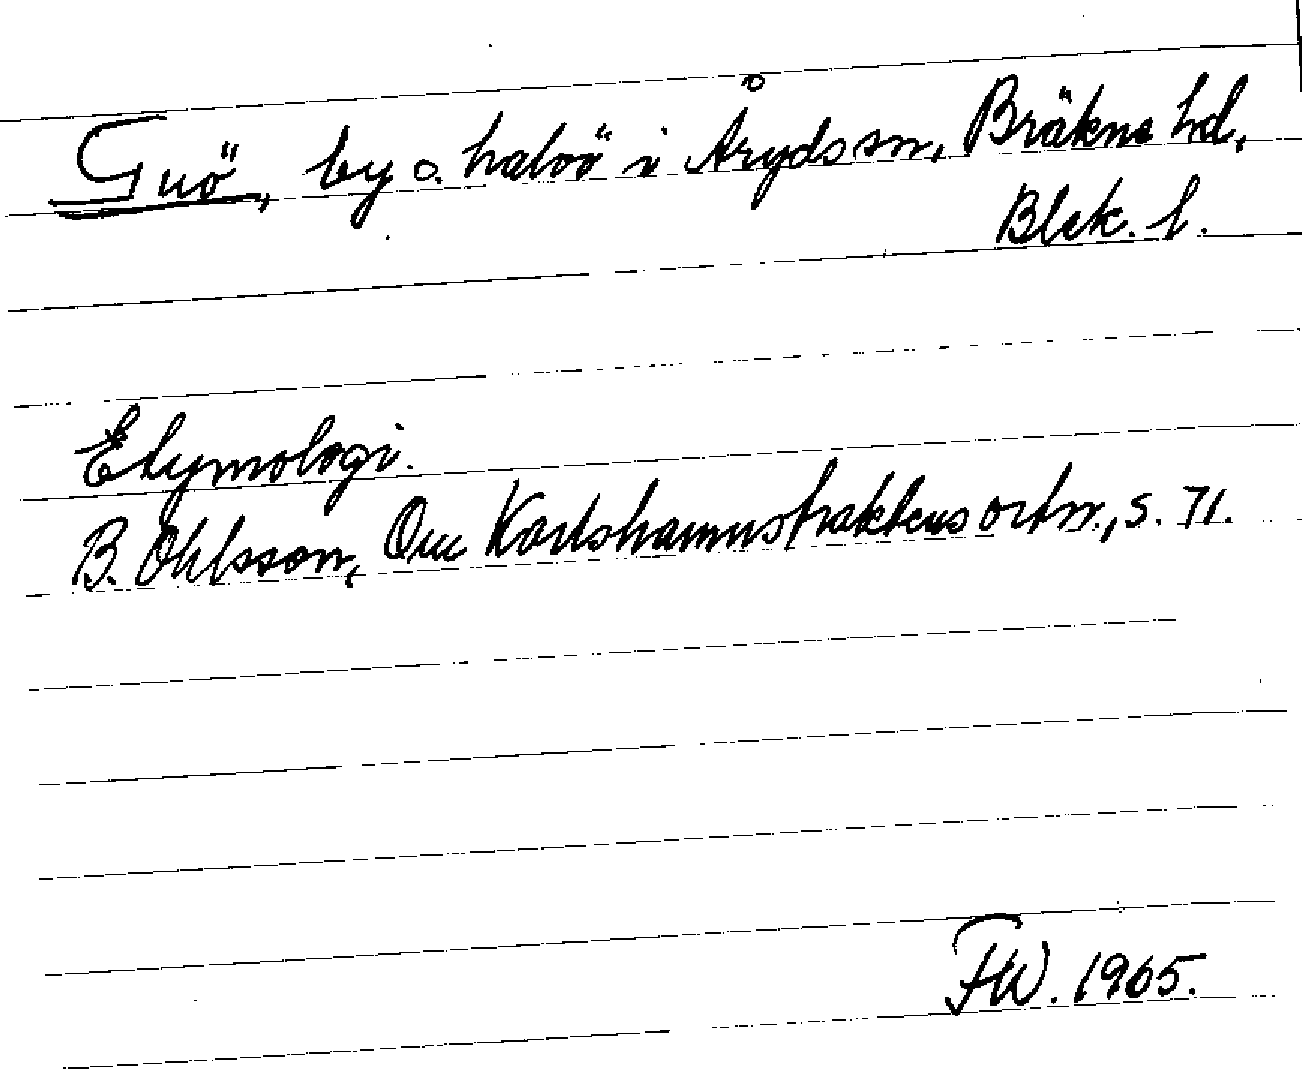 Guö, by o. halvö i Åryds sn, Bräkne hd,
Blek. l.
Etymologi.
B. Ohlsson, Om Karlshamnstraktens ortn., s. 71.
FW. 1965.